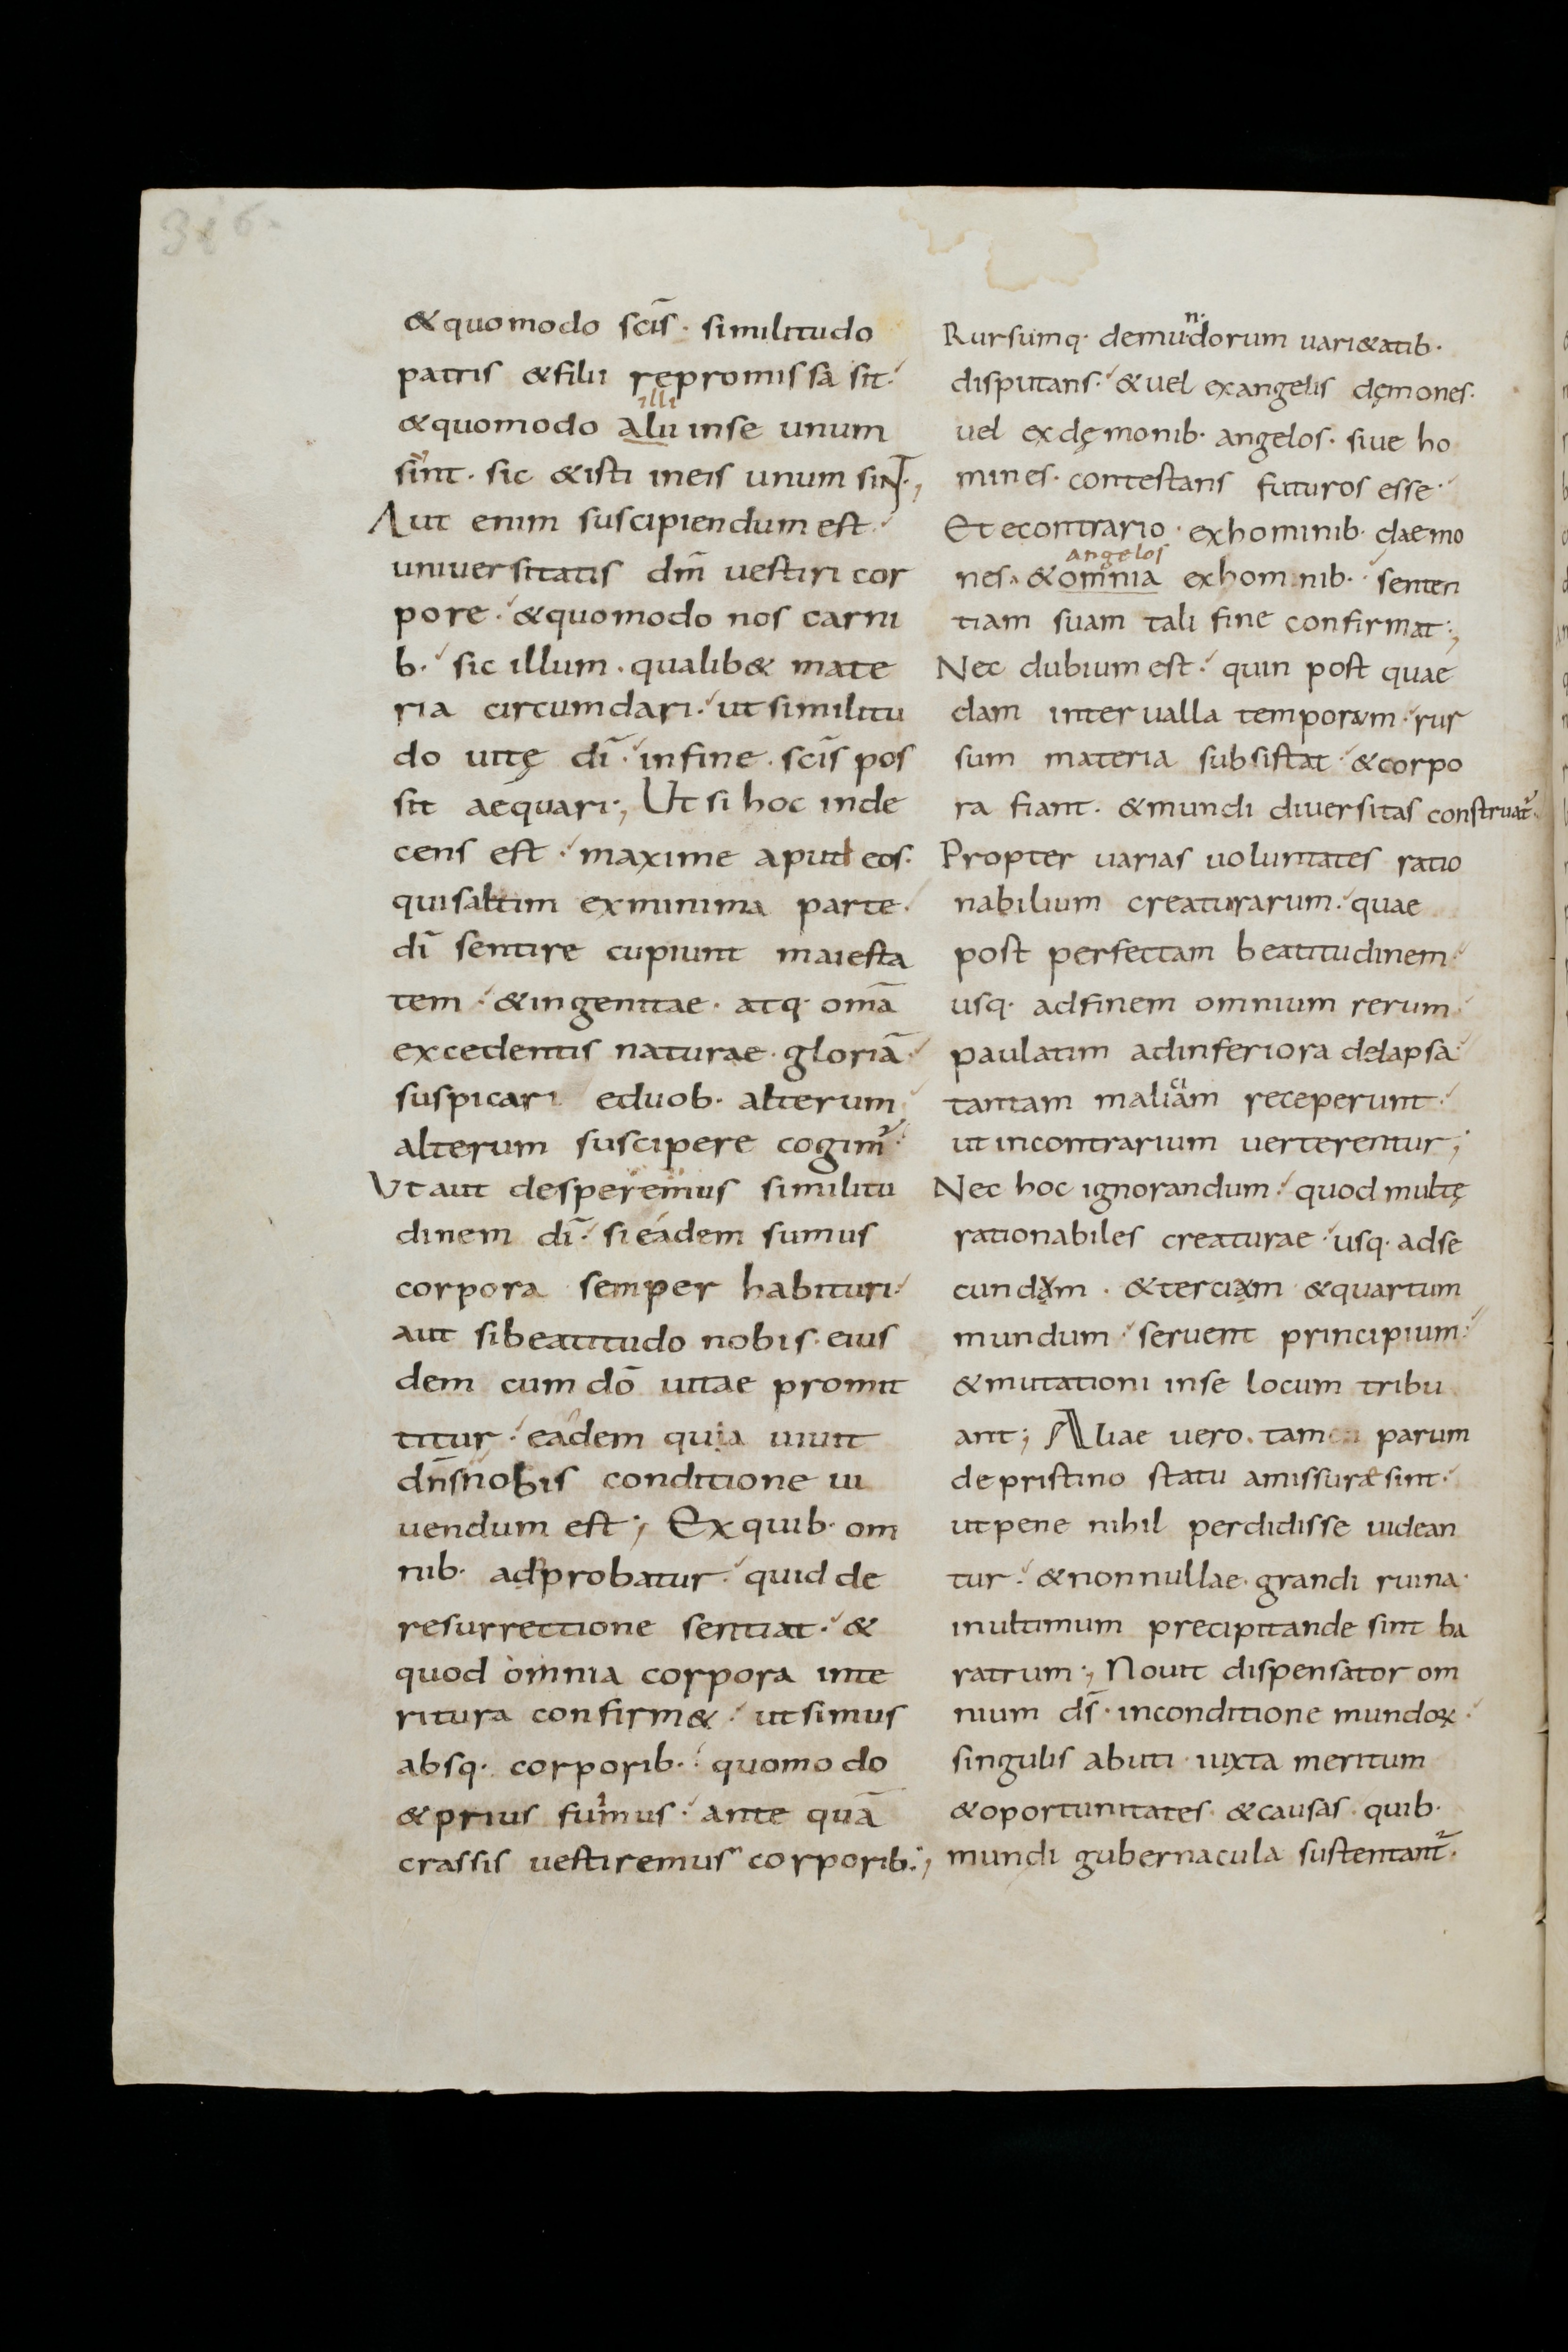 386.
&quomodo scīs· similitudo
patris &filii repromissa sit·
illi
&quomodo alii inse unum
sint· sic &isti ineis unum sint·,
Aut enim suscipiendum est·
universitatis dm̄ vestiri cor
pore· &quomodo nos carni
b· sic illum· qualib& mate
ria circumdari· ut similitu
do uitę dī· infine· scīs pos
sit aequari·, Ut si hoc inde
cens est· maxime apud eos·
quisaltim exminima parte·
dī sentire cupiunt maiesta
tem· &ingenitae· atq· omā
excedentis naturae· gloriā·
suspicari eduob· alterum
alterum suscipere cogim̄·
Ut aut desperemus similitu
dinem dī· si eadem sumus
corpora semper habituri·
aut sibeatitudo nobis· eius
dem cum dō uitae promit
titur· eadem quia uiuit
dn̄s nobis conditione ui
uendum est·, Exquib· om
nib· adprobatur· quid de
resurrectione sentiat· &
quod omnia corpora inte
ritura confirm&· ut simus
absq· corporib·· quomodo
&prius fuimus· ante quā
crassis uestiremus corporib·,
n·
Rursumq· demudorum uari&atib·
disputans· &uel exangelis dęmones·
uel exdęmonib· angelos· siue ho
mines· contestans futuros esse·
Et econtrario· exhominib· daemo
angelos
nes· &omnia exhominib·· senten
tiam suam tali fine confirmat·,
Nec dubium est· quin post quae
dam interualla temporum· rur
sum materia subsistat· &corpo
ra fiant· &mundi diuersitas construat̄·
Propter uarias uoluntates ratio
nabilium creaturarum· quae
post perfectam beatitudinem·
usq· adfinem omnium rerum·
paulatim adinferiora delapsa·
tantam maliam receperunt·
ut incontrarium uerterentur;
Nec hoc ignorandum· quod multę
rationabiles creaturae· usq· adse
cundam· &terciam &quartum
mundum· seruent principium·
&mutationi inse locum tribu
ant; Aliae uero· tamen parum
depristino statu amissuræ sint·
utpene nihil perdidisse uidean
tur· &nonnullae· grandi ruina·
inultimum precipitande sint ba
ratrum·, Nouit dispensator om
nium ds̄· inconditione mundoꝝ·
singulis abuti· iuxta meritum
&oportunitates· &causas· quib·
mundi gubernacula sustentant̄·